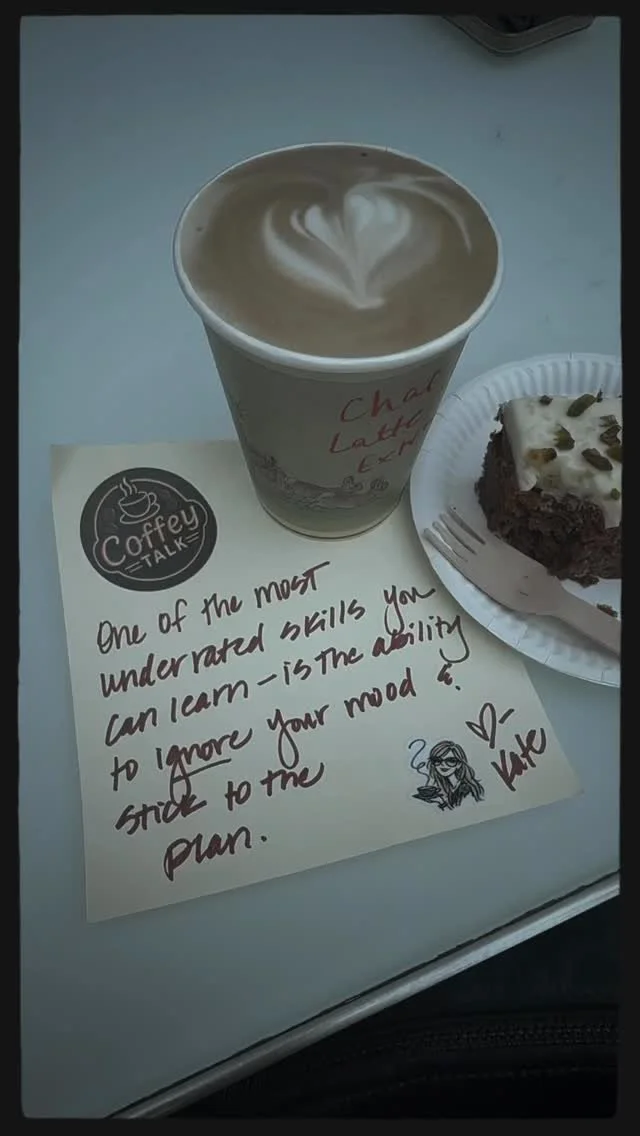 Latte
Coffey
TALK
One of the most
underrated skills you
can learn – is the ability
to ignore your mood &
stick to the
plan.
♡-
Kate